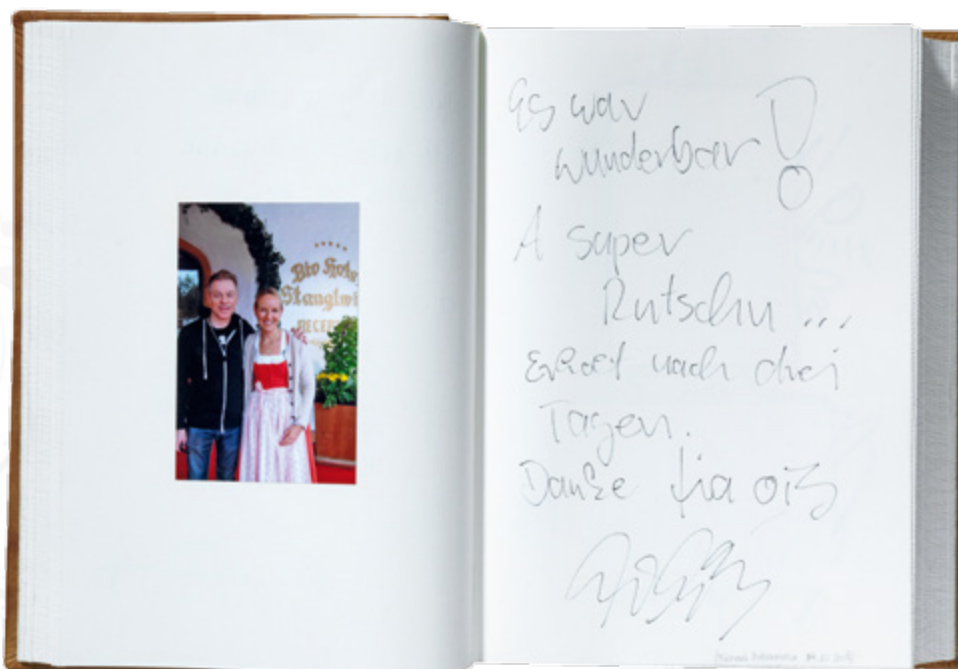 Bio Hote
Stanglwi
RECEP
Es war
wunderbar!
A super
Rutschn ...
Erholt nach drei
Tagen.
Danke fia ois